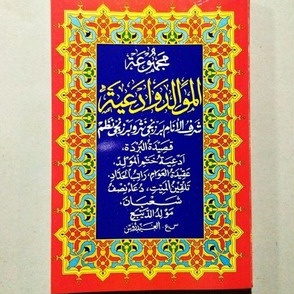 مجموعة
الموالد وأدعية
شرف الأنام برزنجي نثر وبرزنجي نظم
قصيدة البردة،
أدعية ختم المولد،
عقيدة العوام، راتب الحداد،
تلقين الميت، دعاء نصف
شعبان،
مولد الديبع